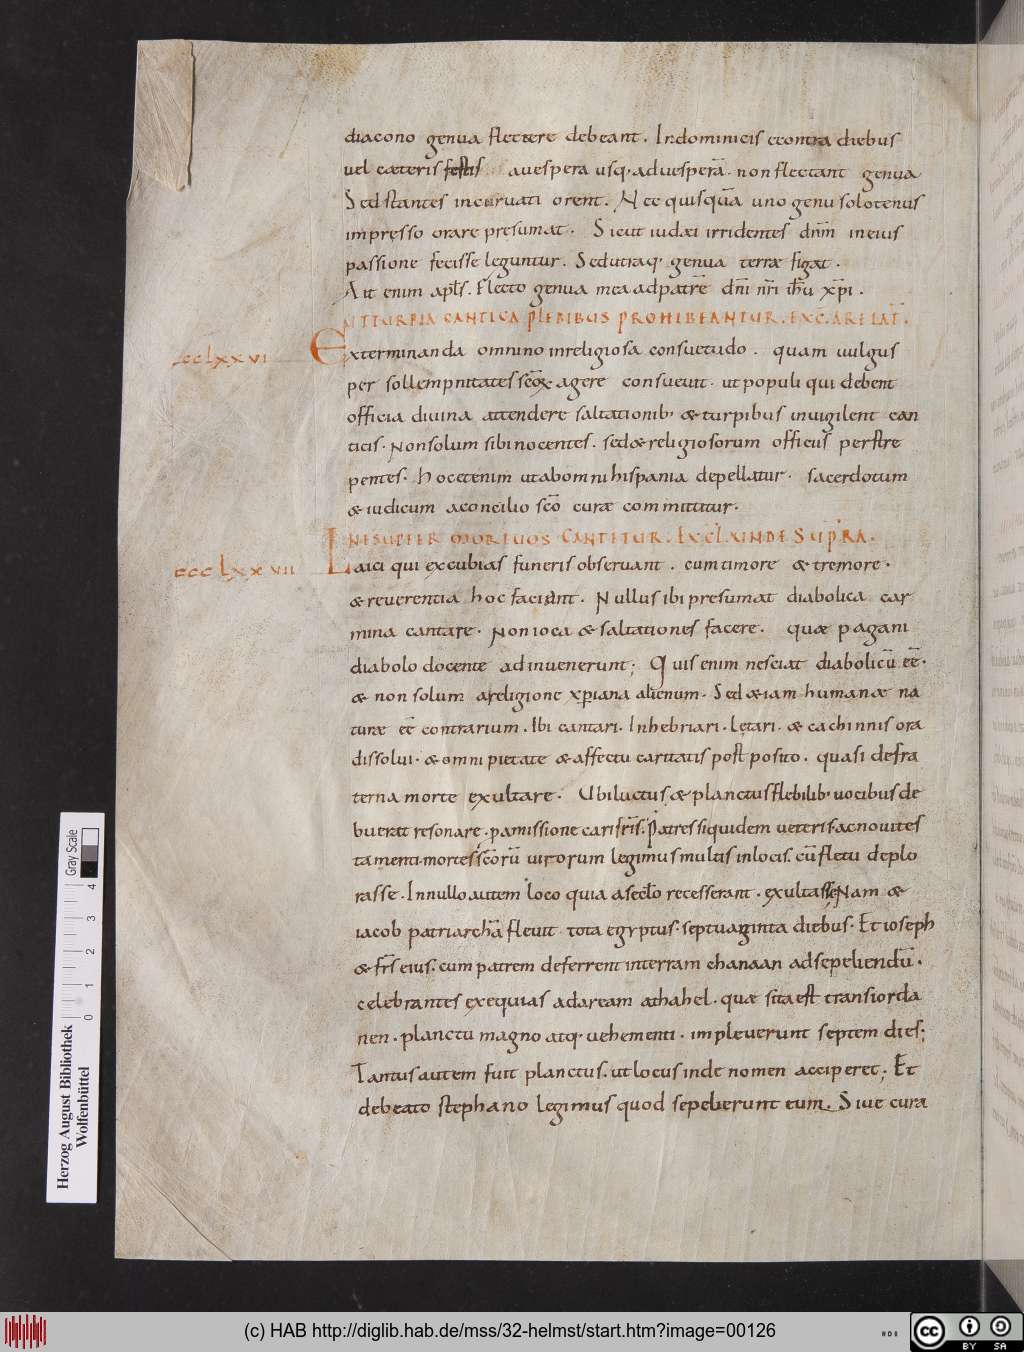 diacono genua flectere debeant. In dominicis & contra diebus
uel cæteris festis a uespera usq; ad uesperā. non flectant genua
Sed stantes incuruati orent. Nec quisquā uno genu solo tenus
impresso orare presumat. Sicut iudæi irridentes dnm̄ in eius
passione fecisse leguntur. Sed utraq; genua terræ figat.
Ait enim apls̄. Flecto genua mea ad patrē dn̄i nr̄i ih̄u xp̄i.
UT TURPIA CANTICA PLEBIBUS PROHIBEANTUR. EXC̄. ARELAT̄.
CCCLXXVI Exterminanda omnino inreligiosa consuetudo. quam uulgus
per sollempnitates scōꝝ agere consueuit. ut populi qui debent
officia diuina attendere saltationib; & turpibus inuigilent can
ticis. Non solum sibi nocentes. sed & religiosorum officiis perstre
pentes. Hoc etenim ut ab omni hispania depellatur. sacerdotum
& iudicum a concilio scō curæ committitur.
NE SUPER MORTUOS CANTETUR. EXC̄L XINDE SUPRA.
CCCLXXVII Laici qui excubias funeris obseruant. cum timore & tremore.
& reuerentia hoc faciant. Nullus ibi presumat diabolica car
mina cantare. Non ioca & saltationes facere. quæ pagani
diabolo docente adinuenerunt; Quis enim nesciat diabolicū eē.
& non solum a religione xp̄iana alienum. Sed & iam humanæ na
turæ eē contrarium. Ibi cantari. Inhebriari. Lętari. & cachinnis ora
dissolui. & omni pietate & affectu caritatis postposito. quasi de fra
terna morte exultare. Ubi luctus & planctus flebilib; uocibus de
buerat resonare. p amissione cari fr̄is. Patres siquidem ueteris ac noui tes
tamenti. mortes scōrū uirorum legimus multis in locis. cū fletu deplo
rasse. In nullo autem loco quia a secl̄o recesserant. exultasse. Nam &
iacob patriarchā fleuit tota egyptus. septuaginta diebus. Et ioseph
& frs̄ eius. cum patrem deferrent in terram chanaan ad sepeliendū.
celebrantes exequias ad aream athahel. quæ sita est trans iorda
nen. planctu magno atq; uehementi. impleuerunt septem dies;
Tantus autem fuit planctus. ut locus inde nomen acciperet; Et
de beato stephano legimus quod sepelierunt eum. Siue cura
Herzog August Bibliothek
Wolfenbüttel
0 1 2 3 4
Gray Scale
(c) HAB http://diglib.hab.de/mss/32-helmst/start.htm?image=00126
cc BY SA